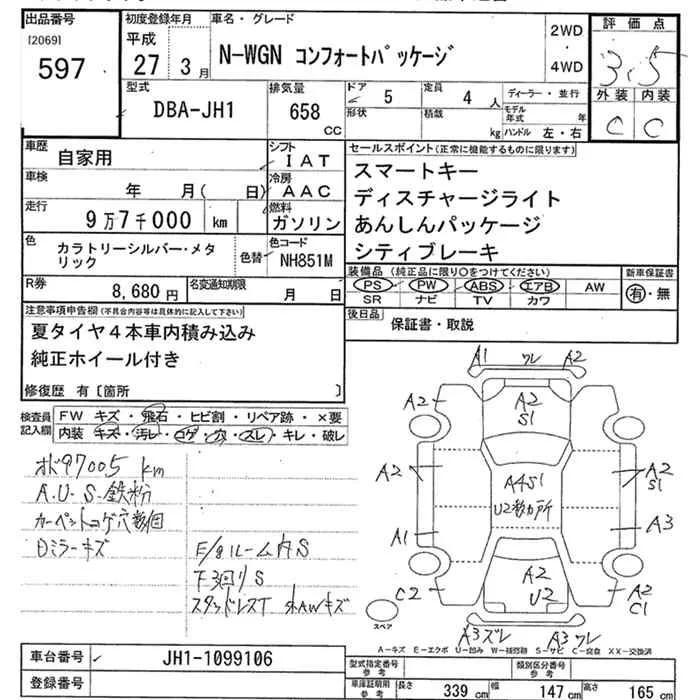 出品番号
[2069]
597
初度登録年月
平成
27 3月
車名・グレード
N-WGN コンフォートパッケージ
2WD
4WD
評価点
3.5
外装 内装
C C
型式
DBA-JH1
排気量
658
CC
ドア
5
形状
定員
4 人
積載
kg
ディーラー・並行
モデル年式 年
ハンドル 左・右
車歴
自家用
シフト
IAT
車検
年 月( 日)
冷房
AAC
走行
9万7千000 km
燃料
ガソリン
色
カラトリーシルバー・メタリック
色替
色コード
NH851M
R券
8,680 円
名変通知期限
月 日
セールスポイント(正常に機能するものに限ります)
スマートキー
ディスチャージライト
あんしんパッケージ
シティブレーキ
装備品(純正品に限り○をつけてください)
PS PW ABS エアB AW
SR ナビ TV カワ
新車保証書
有・無
後日品
保証書・取説
注意事項申告欄(不具合内容等は具体的に記入して下さい)
夏タイヤ4本車内積み込み
純正ホイール付き
修復歴 有〔箇所 〕
検査員記入欄
FW キズ・飛石・ヒビ割・リペア跡・×要
内装 キズ・汚レ・コゲ・穴・スレ・キレ・破レ
オド97005 km
A.U.S.鉄粉
カーペットコゲ穴数個
Dミラーキズ
E/gルーム内S
下3回りS
スタッドレスT 外AWキズ
A1 ワレ A2
A2
A2
S1
A2
A4S1
U2数カ所
A2
S1
A1
A3
C2
A2
U2
A2
C1
A3ズレ A3ワレ
スペア
A-キズ E-エクボ U-凹み W-補修跡 S-サビ C-腐食 XX-交換済
車台番号
JH1-1099106
登録番号
型式指定番号
参考
類別区分番号
参考
車庫証明用
参考
長さ 339 cm
幅 147 cm
高さ 165 cm